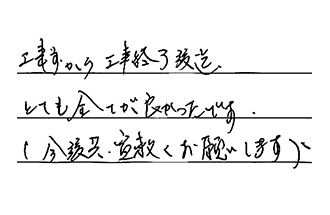 工事前から工事終了後迄、
とても全てが良かったです。
（今後共、宜敷くお願いします）